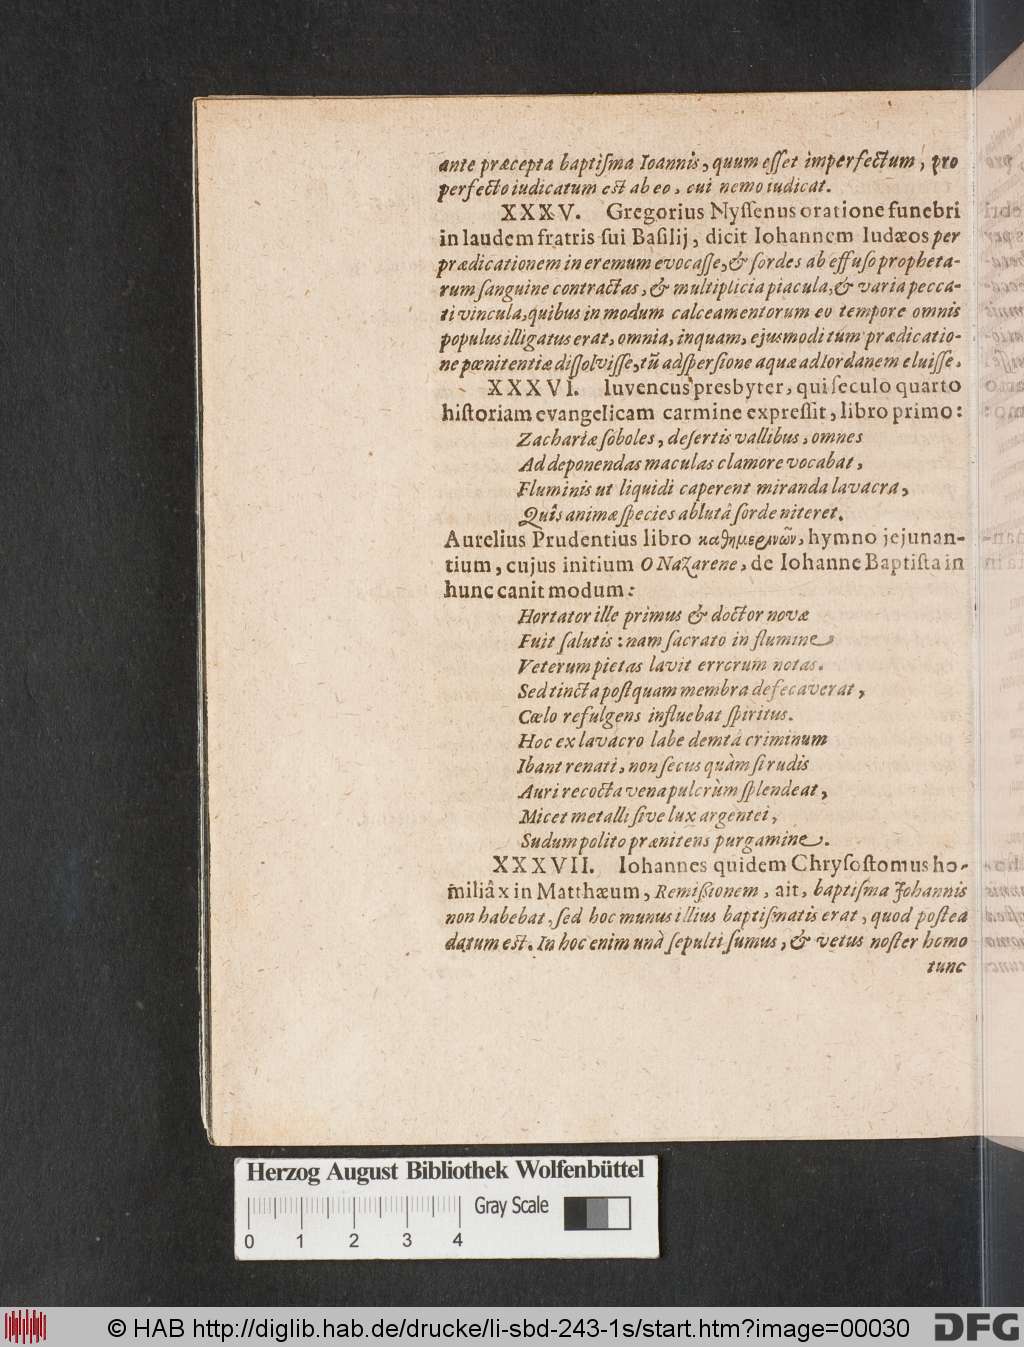 ante præcepta baptiſma Ioannis, quum eſſet imperfectum, pro
perfecto iudicatum est ab eo, cui nemo iudicat.
XXXV. Gregorius Nyſſenus oratione funebri
in laudem fratris ſui Baſilij, dicit Iohannem Iudæos per
prædicationem in eremum evocaſſe, & ſordes ab effuſo propheta-
rum ſanguine contractas, & multiplicia piacula, & varia pecca-
ti vincula, quibus in modum calceamentorum eo tempore omnis
populus illigatus erat, omnia, inquam, ejusmodi tum prædicatio-
ne pœnitentiæ diſſolviſſe, tū adſperſione aquæ ad Iordanem eluiſſe.
XXXVI. Iuvencus presbyter, qui ſeculo quarto
hiſtoriam evangelicam carmine expreſſit, libro primo:
Zachariæ ſoboles, deſertis vallibus, omnes
Ad deponendas maculas clamore vocabat,
Fluminis ut liquidi caperent miranda lavacra,
Quîs animæ ſpecies ablutâ ſorde niteret.
Aurelius Prudentius libro καθημερινῶν, hymno jejunan-
tium, cujus initium O Nazarene, de Iohanne Baptiſta in
hunc canit modum:
Hortator ille primus & doctor novæ
Fuit ſalutis: nam ſacrato in flumine
Veterum pietas lavit errorum notas.
Sed tincta poſtquam membra defecaverat,
Cœlo refulgens influebat ſpiritus.
Hoc ex lavacro labe demtâ criminum
Ibant renati, non ſecus quàm ſi rudis
Auri recocta vena pulcrùm ſplendeat,
Micet metalli ſive lux argentei,
Sudum polito prænitens purgamine.
XXXVII. Iohannes quidem Chryſoſtomus ho-
miliâ x in Matthæum, Remiſsionem, ait, baptiſma Johannis
non habebat, ſed hoc munus illius baptiſmatis erat, quod poſtea
datum est. In hoc enim unà ſepulti ſumus, & vetus noſter homo
tunc
Herzog August Bibliothek Wolfenbüttel
Gray Scale
0 1 2 3 4
© HAB http://diglib.hab.de/drucke/li-sbd-243-1s/start.htm?image=00030
DFG